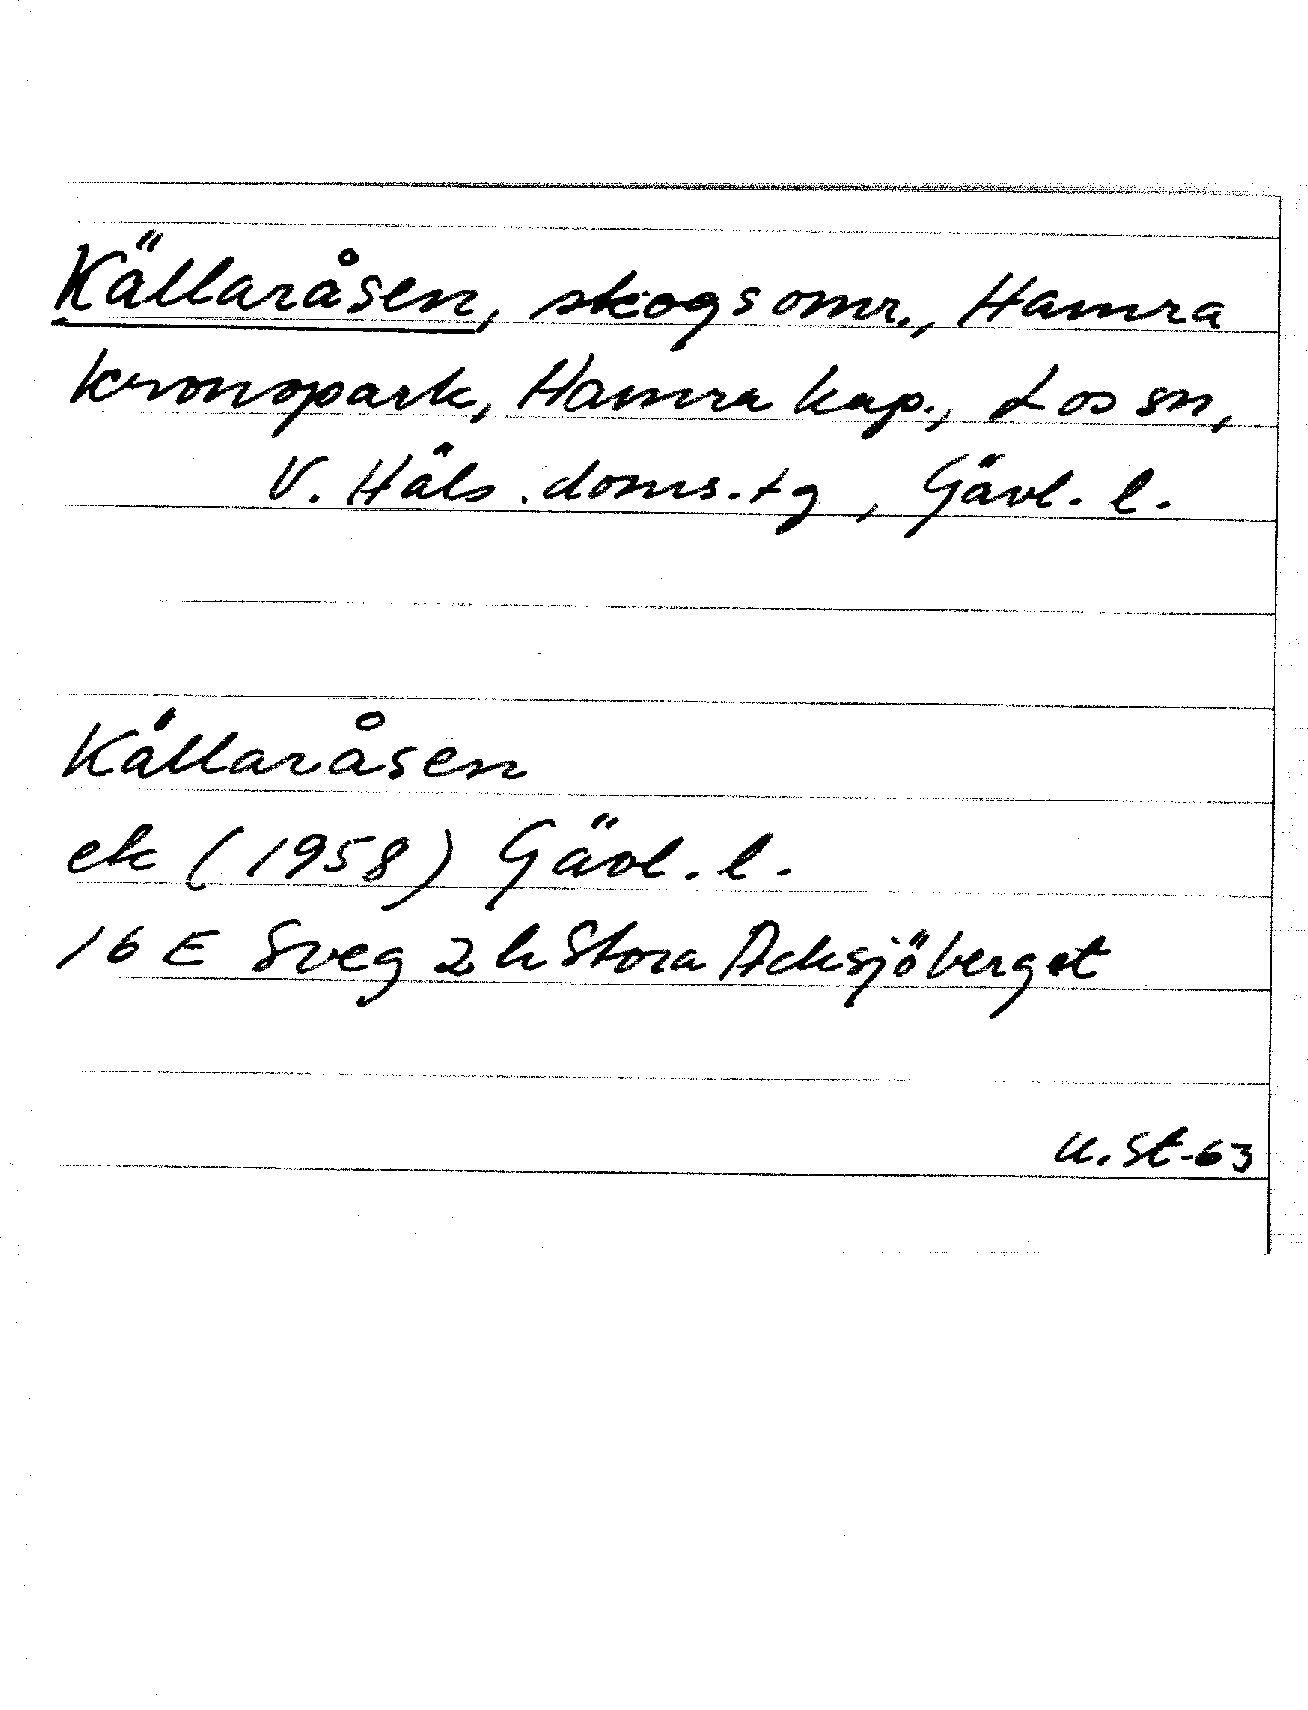 Källaråsen, skogsomr., Hamra
kronopark, Hamra kap., Los sn,
V. Häls. doms. tg, Gävl. l.
Källaråsen
ek (1958) Gävl. l.
16 E Sveg 2 h Stora Acksjöberget
U. St-63